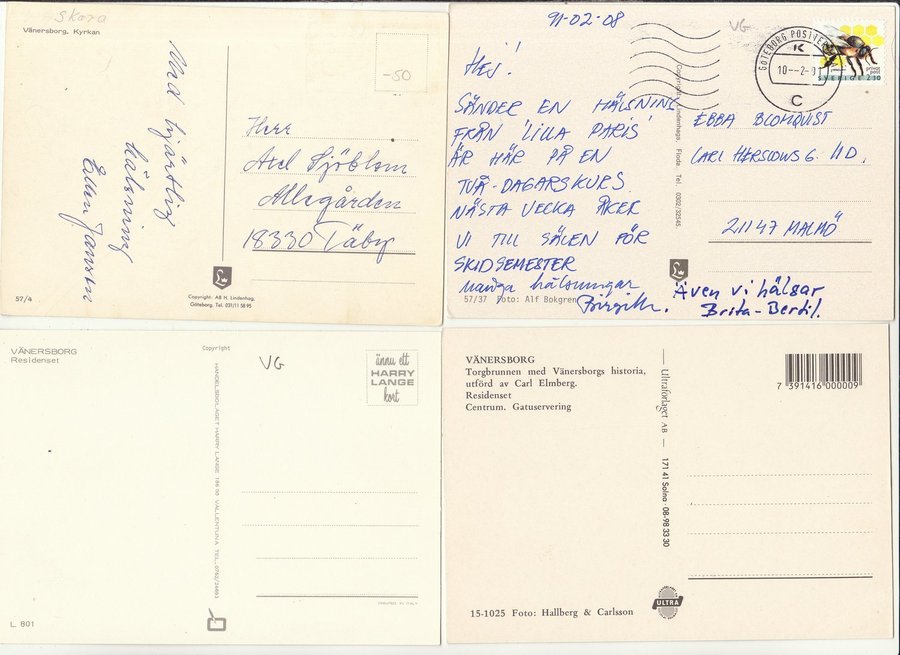 Skara
Vänersborg. Kyrkan
-50
Med hjärtlig
hälsning
Ellen Jansson
Herr
Axel Sjöblom
Allégården
18330 Täby
57/4
Copyright: AB H. Lindenhag.
Göteborg. Tel. 031/11 58 95
91-02-08
VG
HEJ!
SÄNDER EN HÄLSNING
FRÅN 'LILLA PARIS'
ÄR HÄR PÅ EN
TVÅ-DAGARSKURS.
NÄSTA VECKA ÅKER
VI TILL SÄLEN FÖR
SKIDSEMESTER
Många hälsningar
Birgitta.
Även vi hälsar
Brita-Bertil.
57/37 Foto: Alf Bokgren
Copyright: Lindenhags, Floda. Tel. 0302/32545.
GÖTEBORG
K
10--2-9
C
SVERIGE 2.30
EBBA BLOMQVIST
CARL HERSLOWS G. 11D.
21147 MALMÖ
VÄNERSBORG
Residenset
Copyright
VG
ännu ett
HARRY
LANGE
kort
HANDELSBOLAGET HARRY LANGE 186 00 VALLENTUNA TEL. 0762/24603
PRINTED IN ITALY
L. 801
VÄNERSBORG
Torgbrunnen med Vänersborgs historia,
utförd av Carl Elmberg.
Residenset
Centrum. Gatuservering
Ultraförlaget AB — 171 41 Solna · 08-98 33 30
7 391416 000009
ULTRA
15-1025 Foto: Hallberg & Carlsson